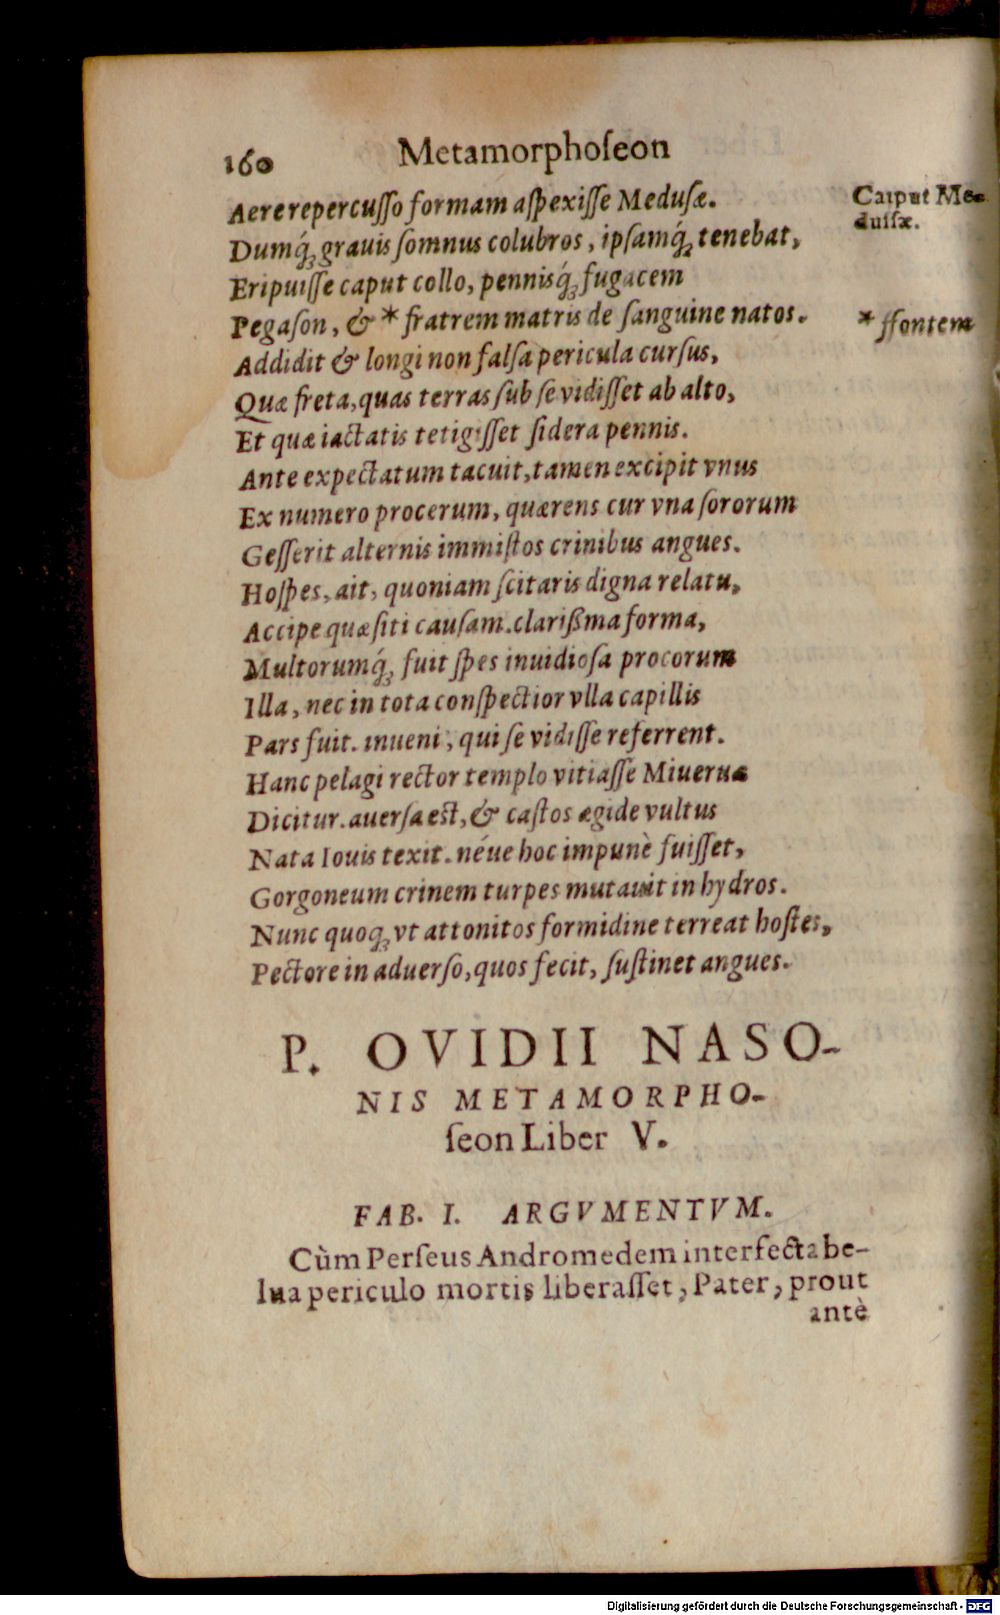 160 Metamorphoſeon
Aere repercuſſo formam aſpexiſſe Meduſæ.
Caput Me-
duſæ.
Dumq́; grauis ſomnus colubros, ipſamq́; tenebat,
Eripuiſſe caput collo, pennisq́; fugacem
Pegaſon, & * fratrem matris de ſanguine natos.
* ffontem
Addidit & longi non falſa pericula curſus,
Quæ freta, quas terras ſub ſe vidiſſet ab alto,
Et quæ iactatis tetigiſſet ſidera pennis.
Ante expectatum tacuit, tamen excipit vnus
Ex numero procerum, quærens cur vna ſororum
Geſſerit alternis immiſtos crinibus angues.
Hoſpes, ait, quoniam ſcitaris digna relatu,
Accipe quæſiti cauſam. clarißma forma,
Multorumq́; fuit ſpes inuidioſa procorum
Illa, nec in tota conſpectior vlla capillis
Pars fuit. inueni, qui ſe vidiſſe referrent.
Hanc pelagi rector templo vitiaſſe Miueruæ
Dicitur. auerſa eſt, & caſtos ægide vultus
Nata Iouis texit. néue hoc impunè fuiſſet,
Gorgoneum crinem turpes mutauit in hydros.
Nunc quoq; vt attonitos formidine terreat hoſtes,
Pectore in aduerſo, quos fecit, ſuſtinet angues.
P. OVIDII NASO-
NIS METAMORPHO-
ſeon Liber V.
FAB. I. ARGVMENTVM.
Cùm Perſeus Andromedem interfecta be-
lua periculo mortis liberaſſet, Pater, prout
antè
Digitalisierung gefördert durch die Deutsche Forschungsgemeinschaft - DFG